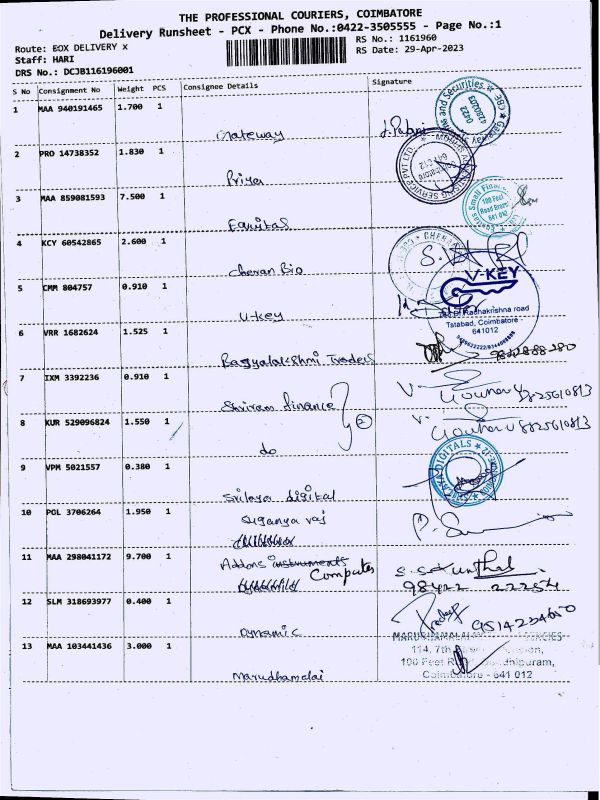 THE PROFESSIONAL COURIERS, COIMBATORE
Delivery Runsheet - PCX - Phone No.:0422-3505555 - Page No.:1
Route: EOX DELIVERY x
RS No.: 1161960
Staff: HARI
RS Date: 29-Apr-2023
DRS No.: DCJB116196001
S No Consignment No Weight PCS Consignee Details Signature
1 MAA 940191465 1.700 1
Gateway
2 PRO 14738352 1.830 1
Priya
3 MAA 859081593 7.500 1
Equitas
4 KCY 60542865 2.600 1
Cheran Bio
5 CMM 804757 0.910 1
V-KEY
U-key
Radhakrishna road
Tatabad, Coimbatore
641012
6 VRR 1682624 1.525 1
Bagyalakshmi Traders
7 IXM 3392236 0.910 1
Shriram finance
8825610813
8 KUR 529096824 1.550 1
2
8825610813
do
9 VPM 5021557 0.380 1
Srilaya digital
10 POL 3706264 1.950 1
Suganya raj
11 MAA 298041172 9.700 1
Addons instruments
Computer
98422 22254
12 SLM 318693977 0.400 1
Pradeep
Dynamic
13 MAA 103441436 3.000 1
114, 7th
100 Feet
Coimbatore - 641 012
Marudhamalai